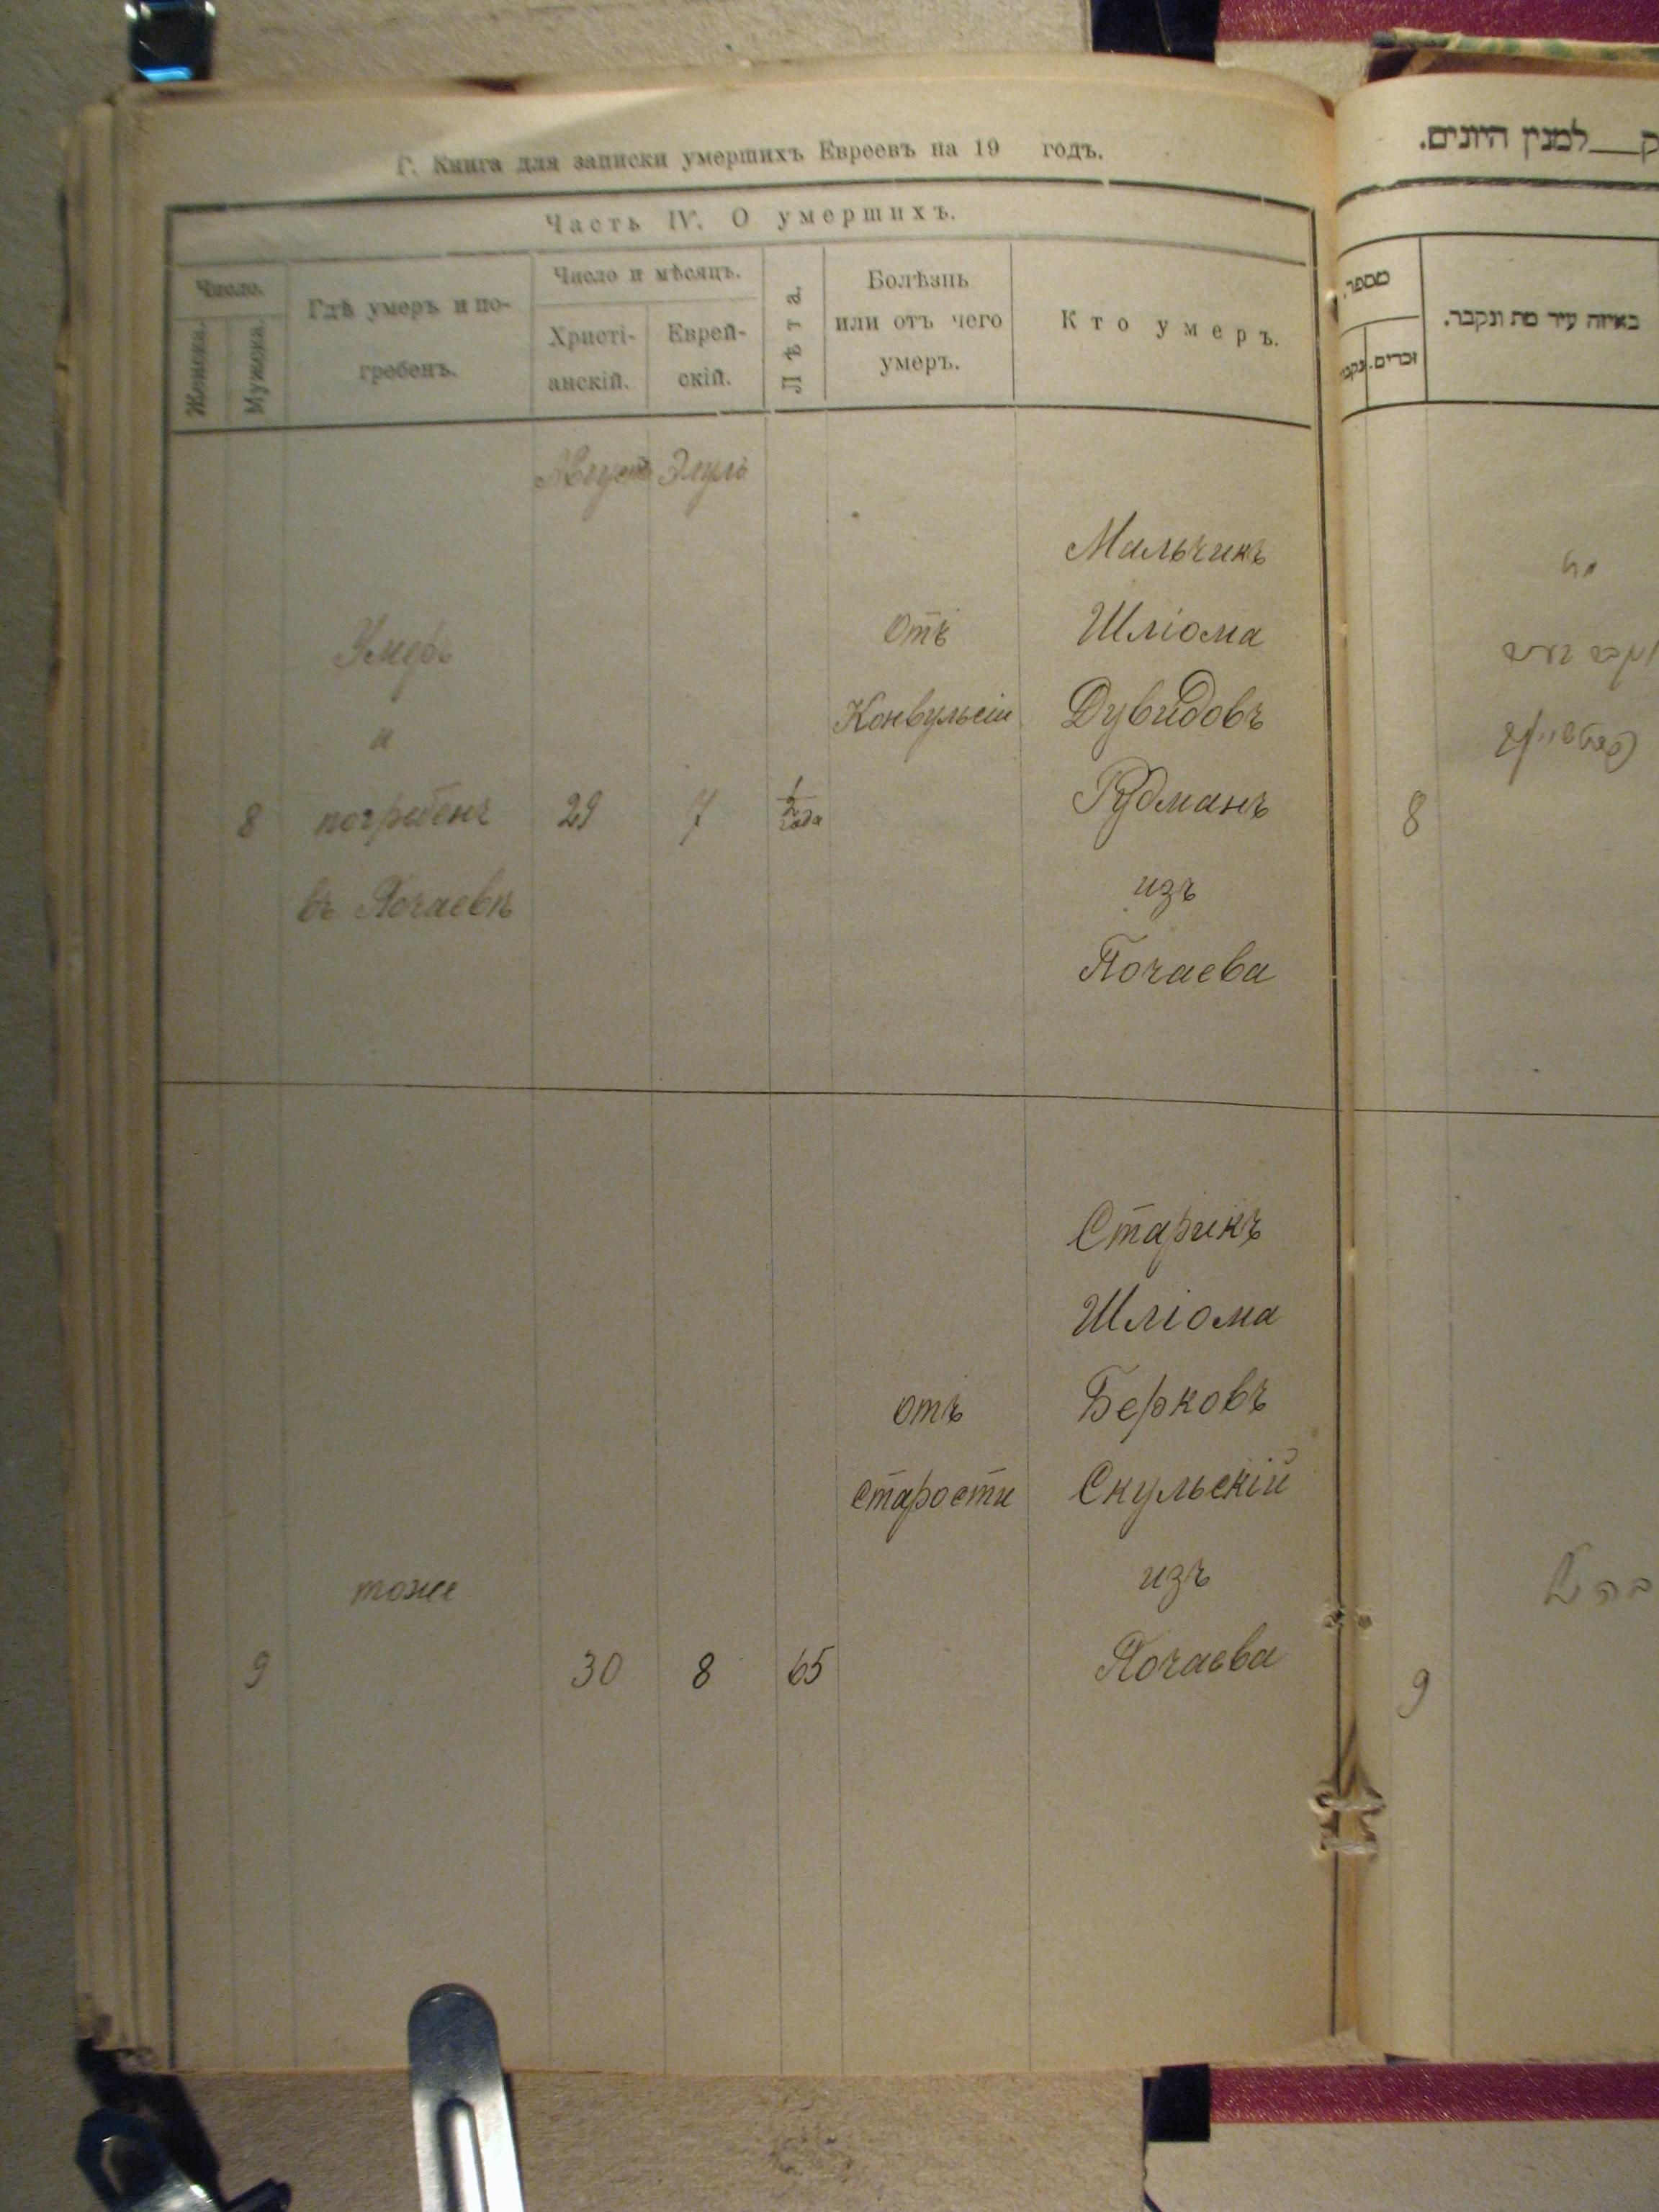 Г. Книга для записки умершихъ Евреевъ на 19 годъ.
Часть IV. О умершихъ.
Число.
Женска.
Мужска.
Гдѣ умеръ и по-
гребенъ.
Число и мѣсяцъ.
Христі-
анскій.
Еврей-
скій.
Лѣта.
Болѣзнь
или отъ чего
умеръ.
Кто умеръ.
Августъ Элулъ
8
Умеръ
и
погребенъ
въ Почаевѣ
29
7
1/2
года
Отъ
Конвульсіи
Мальчикъ
Шліома
Дувидовъ
Рудманъ
изъ
Почаева
9
тоже
30
8
65
отъ
старости
Старикъ
Шліома
Берковъ
Скульскій
изъ
Почаева
למנין היונים.
מספר.
זכרים.
באיזה עיר מת ונקבר.
8
9